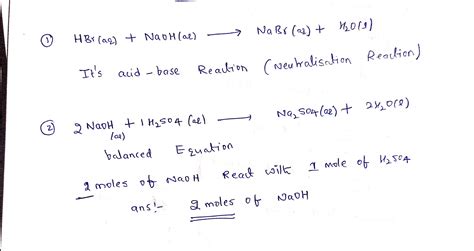 ① HBr(aq) + NaOH(aq) ⟶ NaBr(aq) + H₂O(l)
It's acid-base Reaction (Neutralisation Reaction)
② 2NaOH(aq) + 1H₂SO₄(aq) ⟶ Na₂SO₄(aq) + 2H₂O(l)
balanced Equation
2 moles of NaOH React with 1 mole of H₂SO₄
ans:- 2 moles of NaOH